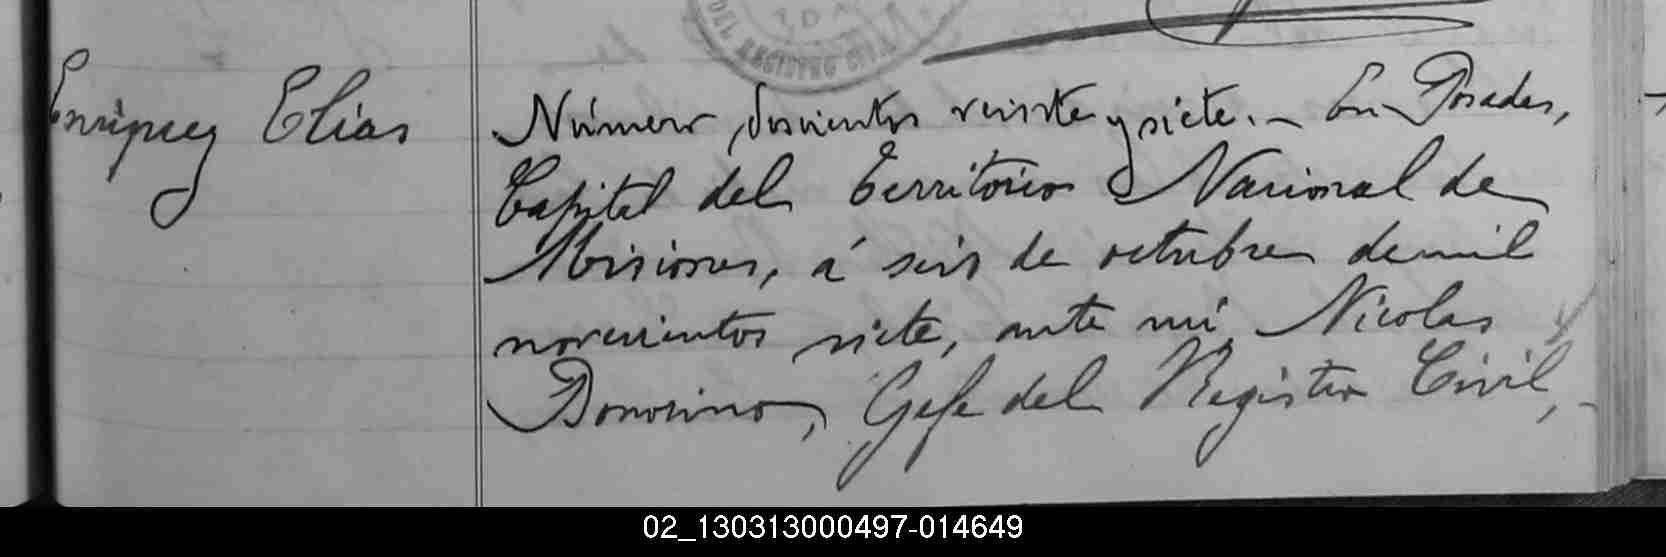 DEL REGISTRO CIVIL
Enriquez Elias
Número, doscientos veinte y siete. – En Posadas,
Capital del Territorio Nacional de
Misiones, á seis de octubre de mil
novecientos siete, ante mi Nicolas
Bonorino, Gefe del Registro Civil, –
02_130313000497-014649